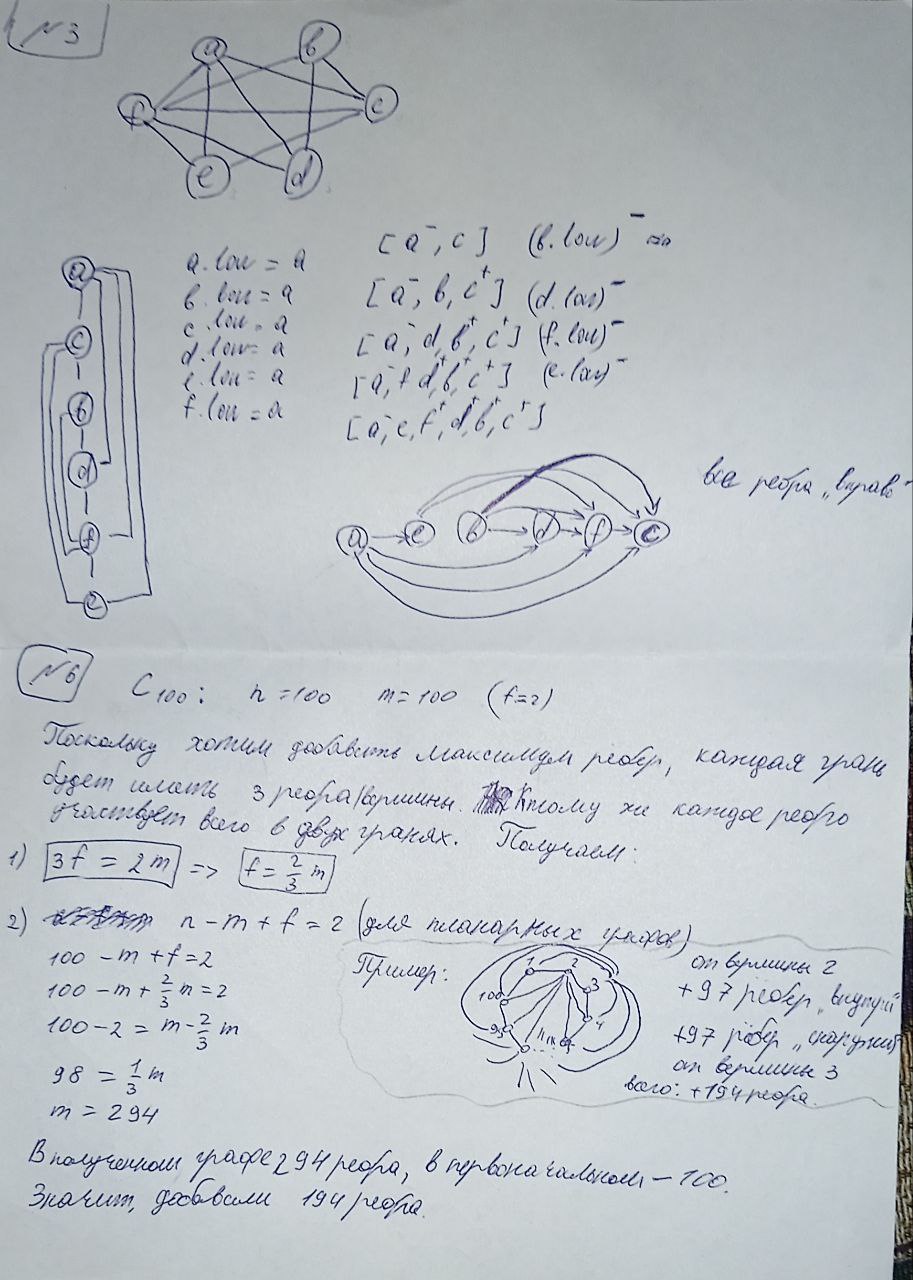 №3
a b
f c
e d
a
c
b
d
f
e
a.low = a
b.low = a
c.low = a
d.low = a
e.low = a
f.low = a
[a⁻, c] (b.low)⁻
[a⁻, b, c⁺] (d.low)⁻
[a⁻, d, b⁺, c⁺] (f.low)⁻
[a⁻, f, d⁺, b⁺, c⁺] (e.low)⁻
[a⁻, e, f⁺, d⁺, b⁺, c⁺]
a e b d f c
все ребра „вправо"
№6
C₁₀₀: n = 100 m = 100 (f=2)
Поскольку хотим добавить максимум ребер, каждая грань
будет иметь 3 ребра/вершины. К тому же каждое ребро
участвует всего в двух гранях. Получаем:
1) 3f = 2m => f = 2/3 m
2) n - m + f = 2 (для планарных графов)
100 - m + f = 2
100 - m + 2/3 m = 2
100 - 2 = m - 2/3 m
98 = 1/3 m
m = 294
Пример:
1 2 3 4 100
от вершины 2
+97 ребер „внутри"
+97 ребер „снаружи"
от вершины 3
всего: +194 ребра.
В полученном графе 294 ребра, в первоначальном – 100.
Значит, добавили 194 ребра.